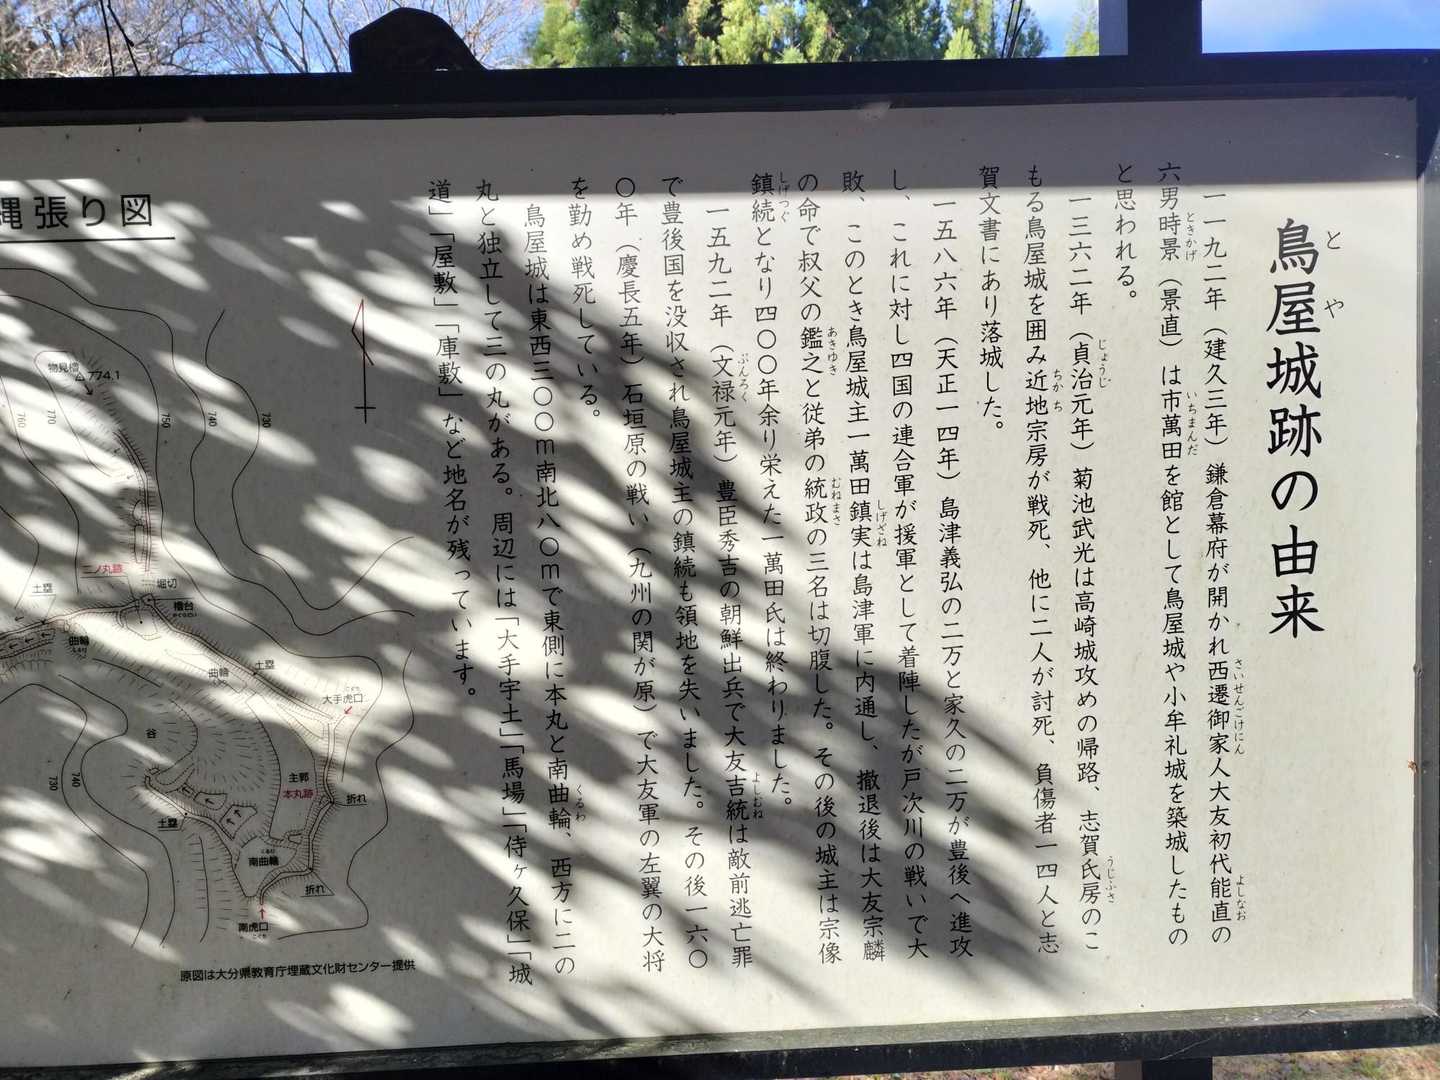 鳥屋城跡の由来
とや
一一九二年（建久三年）鎌倉幕府が開かれ西遷御家人大友初代能直の
さいせんごけにん
よしなお
六男時景（景直）は市萬田を館として鳥屋城や小牟礼城を築城したもの
ときかげ
いちまんだ
と思われる。
一三六二年（貞治元年）菊池武光は高崎城攻めの帰路、志賀氏房のこ
じょうじ
うじふさ
もる鳥屋城を囲み近地宗房が戦死、他に二人が討死、負傷者一四人と志
ちかち
賀文書にあり落城した。
一五八六年（天正一四年）島津義弘の二万と家久の二万が豊後へ進攻
し、これに対し四国の連合軍が援軍として着陣したが戸次川の戦いで大
敗、このとき鳥屋城主一萬田鎮実は島津軍に内通し、撤退後は大友宗麟
しげざね
の命で叔父の鑑之と従弟の統政の三名は切腹した。その後の城主は宗像
あきゆき
むねまさ
鎮続となり四〇〇年余り栄えた一萬田氏は終わりました。
しげつぐ
一五九二年（文禄元年）豊臣秀吉の朝鮮出兵で大友吉統は敵前逃亡罪
ぶんろく
よしむね
で豊後国を没収され鳥屋城主の鎮続も領地を失いました。その後一六〇
〇年（慶長五年）石垣原の戦い（九州の関が原）で大友軍の左翼の大将
を勤め戦死している。
鳥屋城は東西三〇〇m南北八〇mで東側に本丸と南曲輪、西方に二の
くるわ
丸と独立して三の丸がある。周辺には「大手宇土」「馬場」「侍ヶ久保」「城
道」「屋敷」「庫敷」など地名が残っています。
縄張り図
物見櫓
△774.1
760
770
750
740
730
二ノ丸跡
堀切
土塁
櫓台
曲輪
曲輪
土塁
大手虎口
こぐち
谷
主郭
本丸跡
折れ
740
730
土塁
南曲輪
折れ
南虎口
こぐち
原図は大分県教育庁埋蔵文化財センター提供